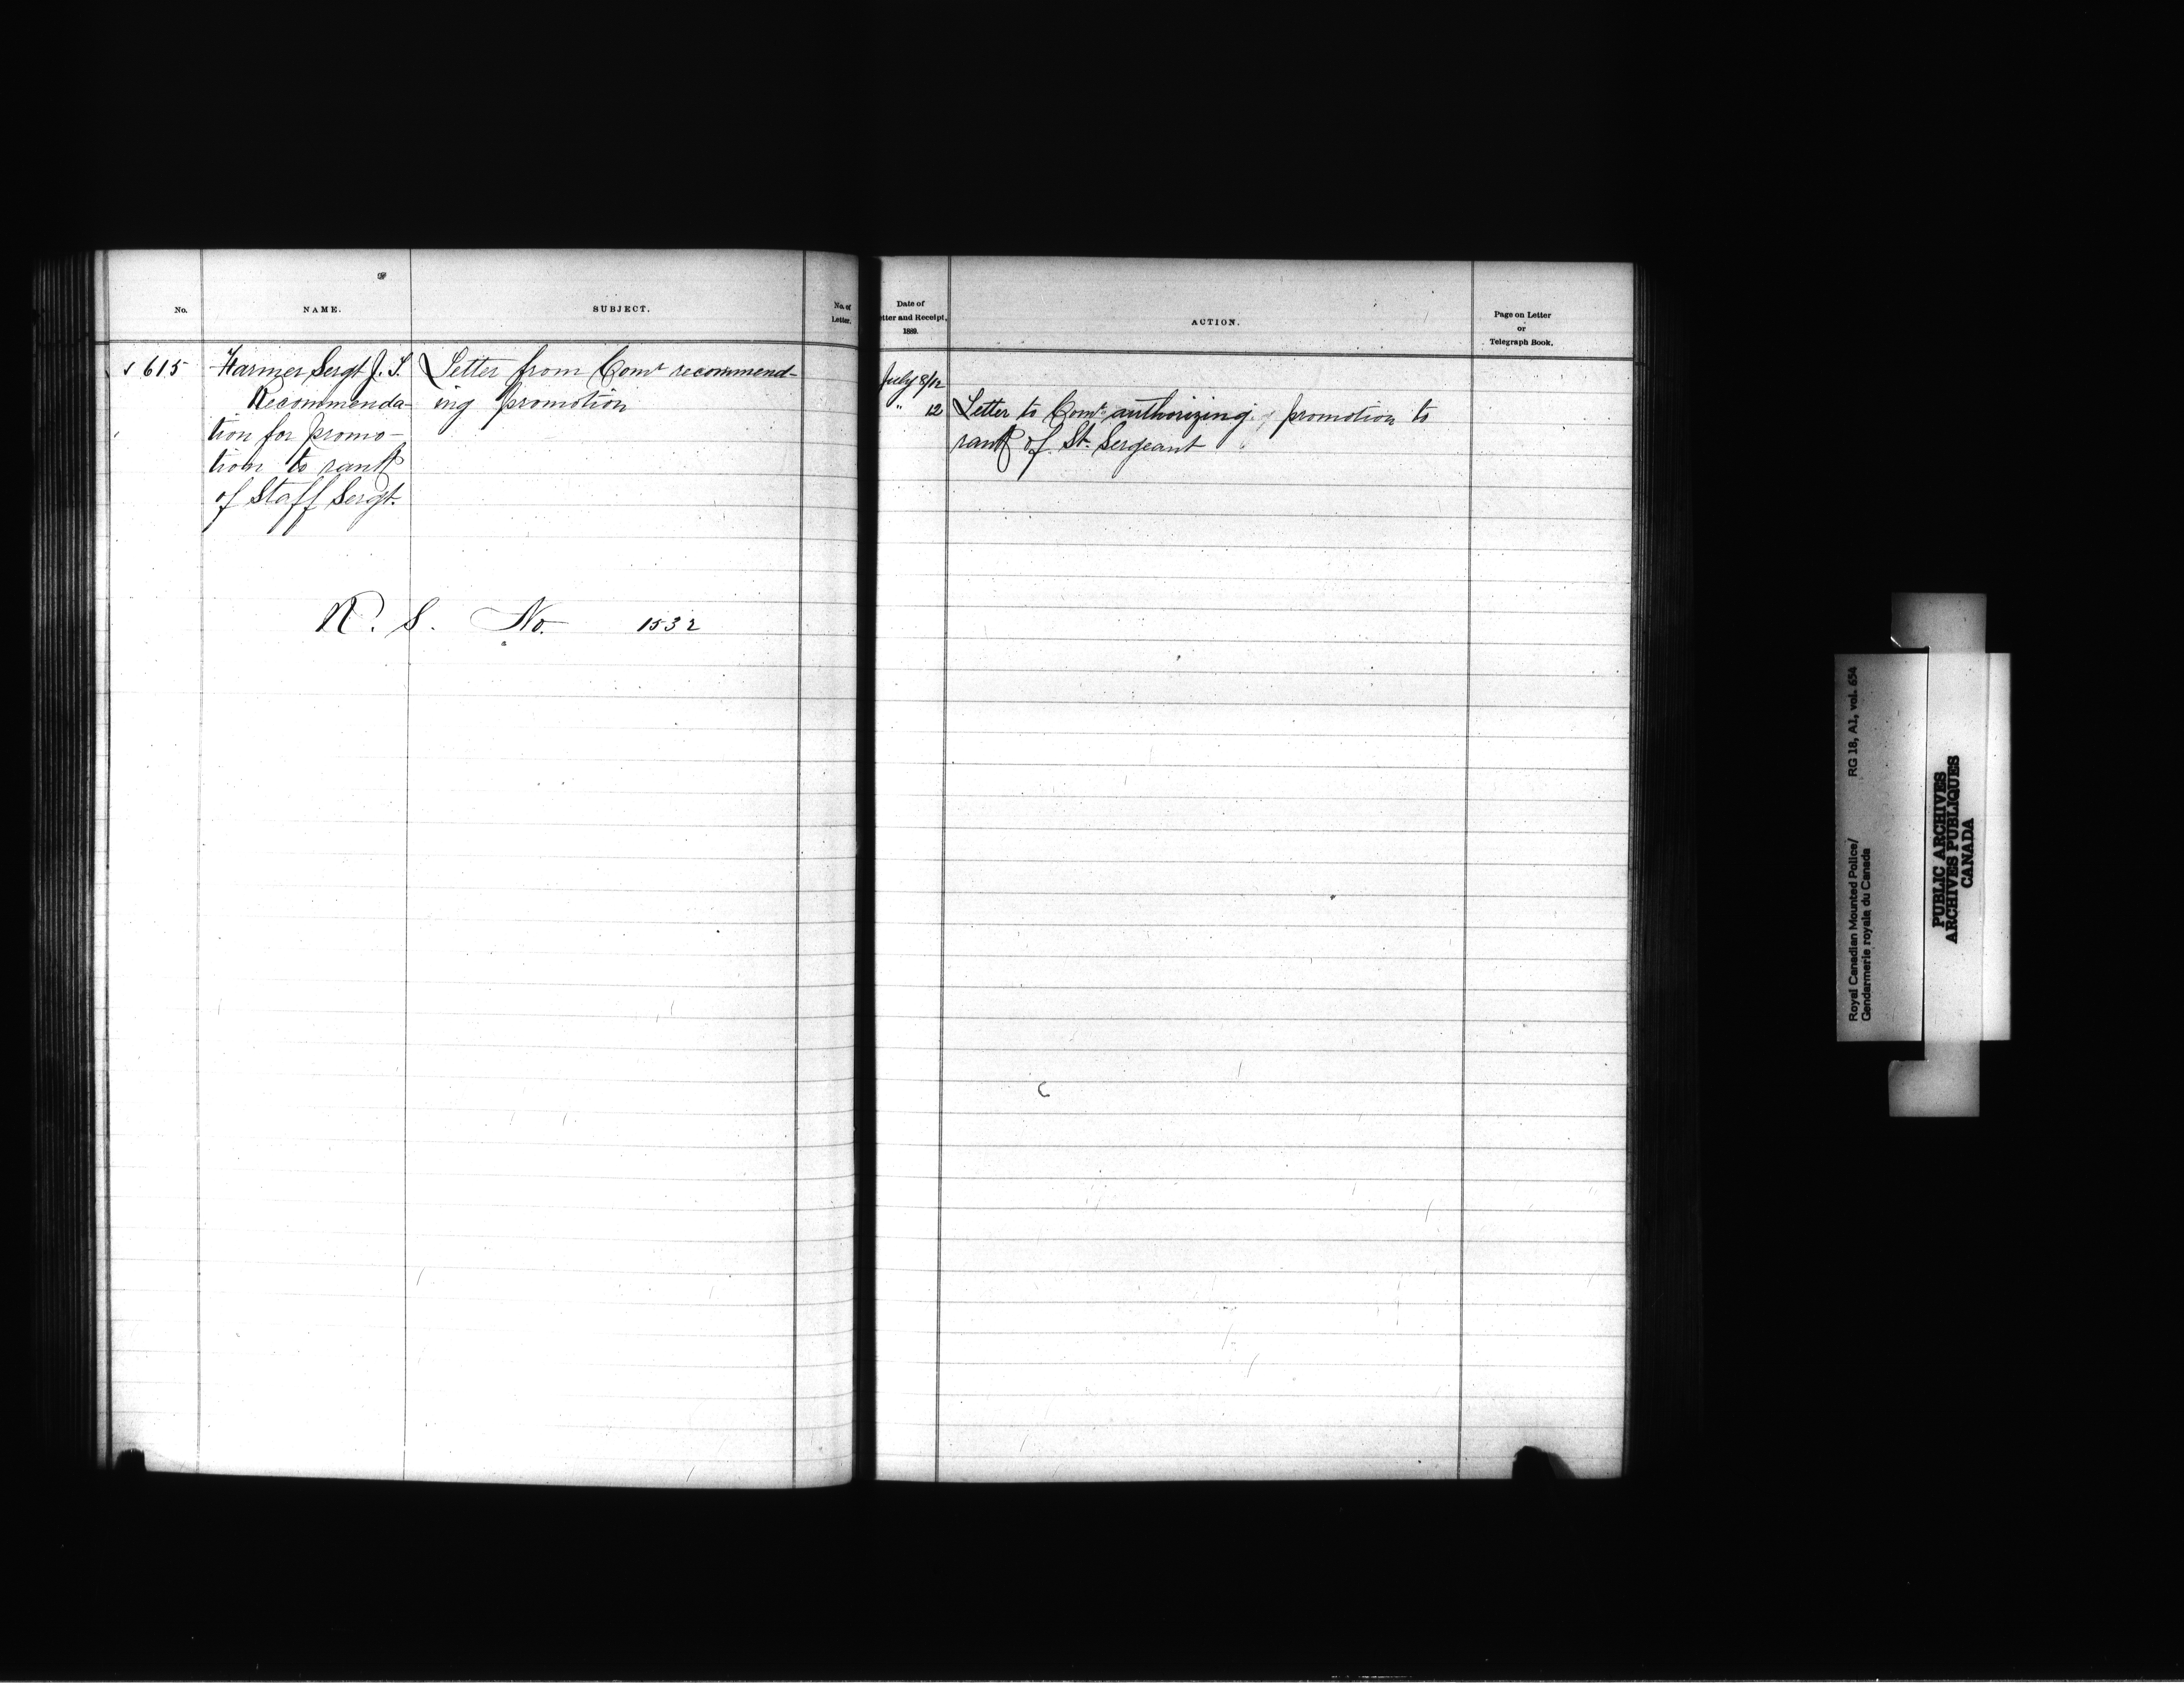 No.
NAME.
SUBJECT.
No. of
Letter.
✓ 615
Harmer Sergt J. S.
Recommenda-
tion for promo-
tion to rank
of Staff Sergt.
Letter from Comr recommend-
ing promotion
R. S. No. 1532
Date of
tter and Receipt,
1889.
ACTION.
Page on Letter
or
Telegraph Book.
July 8/12
" 12
Letter to Comr authorizing promotion to
rank of St. Sergeant
Royal Canadian Mounted Police/ RG 18, A1, vol. 654
Gendarmerie royale du Canada
PUBLIC ARCHIVES
ARCHIVES PUBLIQUES
CANADA